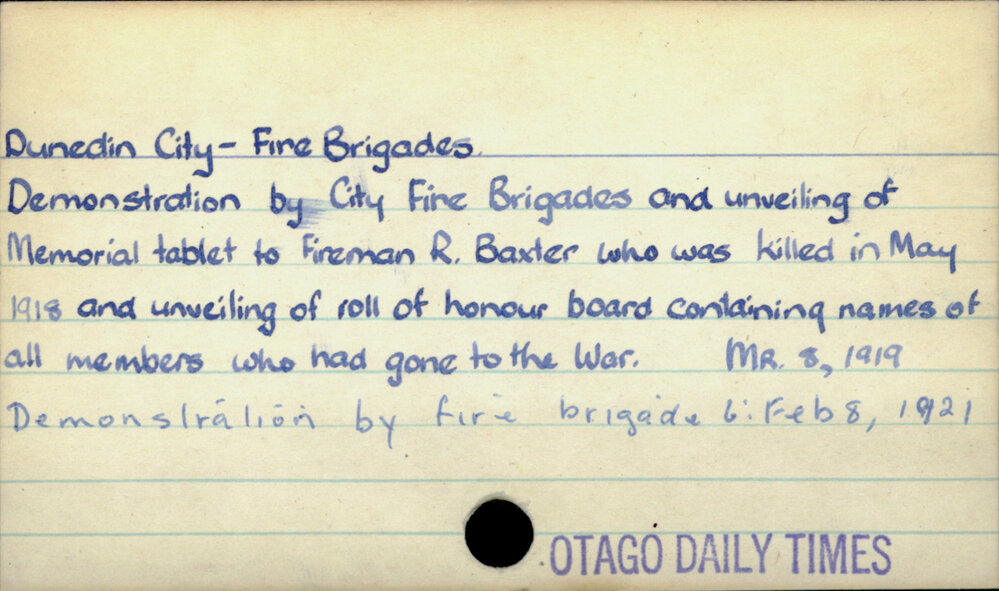 Dunedin City - Fire Brigades.
Demonstration by City Fire Brigades and unveiling of
Memorial tablet to Fireman R. Baxter who was killed in May
1918 and unveiling of roll of honour board containing names of
all members who had gone to the War. MR. 8, 1919
Demonstration by fire brigade 6: Feb 8, 1921
OTAGO DAILY TIMES